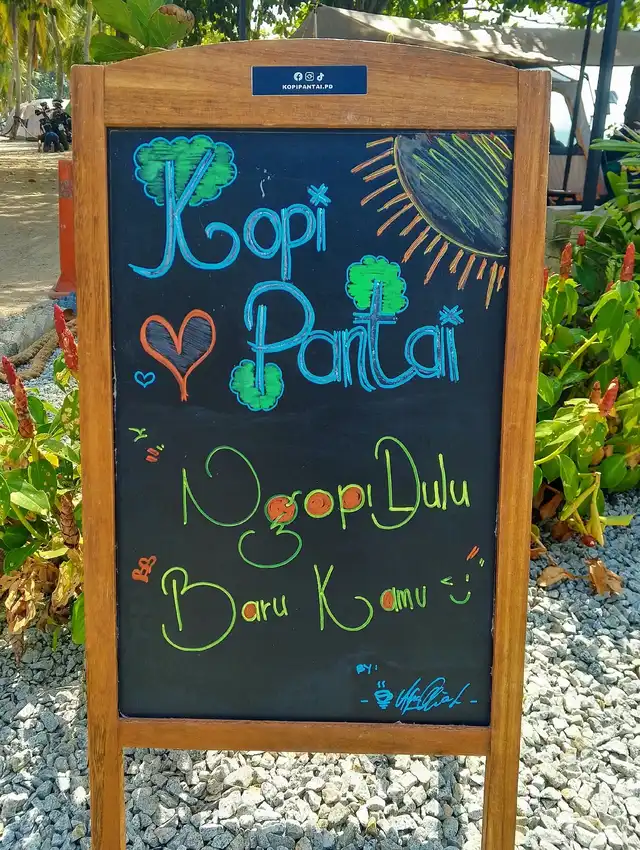 KOPIPANTAI.PD
Kopi
Pantai
Ngopi Dulu
Baru Kamu
BY: